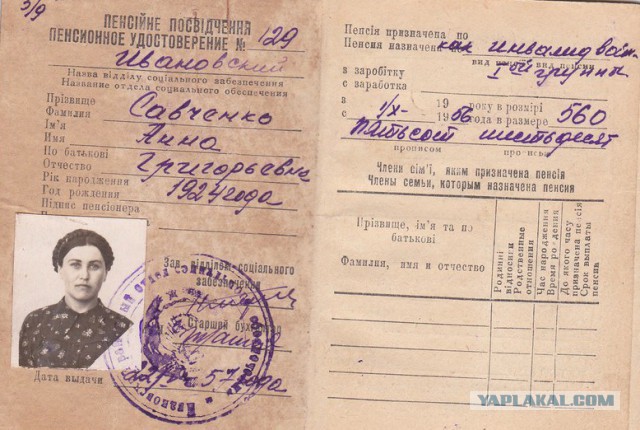 5/9
ПЕНСІЙНЕ ПОСВІДЧЕННЯ
ПЕНСИОННОЕ УДОСТОВЕРЕНИЕ № 129
Ивановский
Назва відділу соціального забезпечення
Название отдела социального обеспечения
Прізвище
Фамилия Савченко
Ім'я
Имя Анна
По батькові
Отчество Григорьевна
Рік народження
Год рождения 1924 года
Підпис пенсіонера
Зав. відділом соціального
забезпечення
Старший бухгалтер
Дата выдачи 57 года
Пенсія призначена по
Пенсия назначена по как инвалид
вид пенсии
з заробітку I ой группы
с заработка
з 19 року в розмірі
с 1/IX- 1956 года в размере 560
Пятьсот шестьдесят
прописом
Члени сім'ї, яким призначена пенсія
Члены семьи, которым назначена пенсия
Прізвище, ім'я та по
батькові
Фамилия, имя и отчество
Родинні
відносини
Родственные
отношения
Час народження
Время рождения
До якого часу
призначена пенсія
Срок выплаты
пенсии
YAPLAKAL.COM